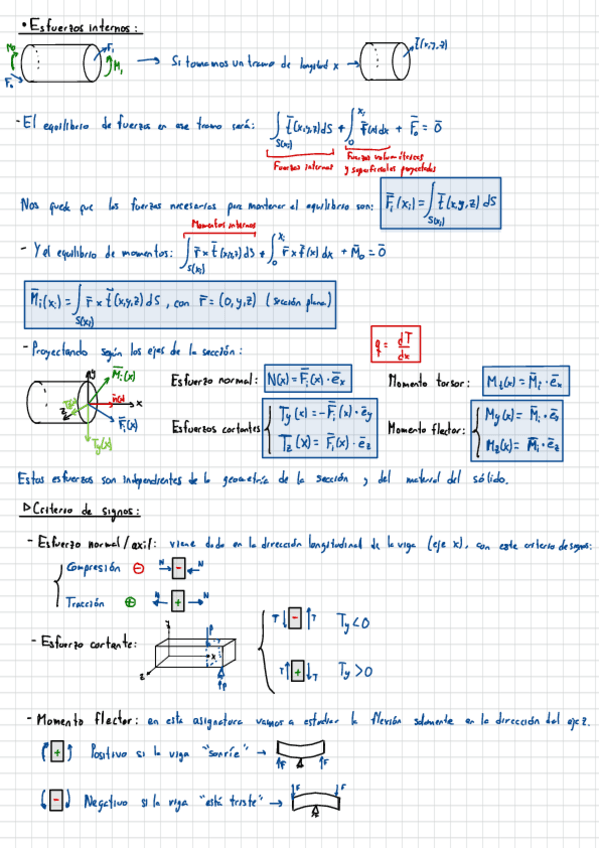 • Esfuerzos internos:
M₀ F₀ F₁ M₁ → Si tomamos un tramo de longitud x → t̄(x,y,z)
- El equilibrio de fuerzas en ese tramo será: ∫_S(xᵢ) t̄(x,y,z)dS + ∫₀^xᵢ f̄(x)dx + F̄₀ = 0̄
Fuerzas internas
Fuerzas volumétricas y superficiales proyectadas
Nos queda que las fuerzas necesarias para mantener el equilibrio son: F̄ᵢ(xᵢ) = ∫_S(xᵢ) t̄(x,y,z) dS
Momentos internos
- Y el equilibrio de momentos: ∫_S(xᵢ) r̄ × t̄(x,y,z)dS + ∫₀^xᵢ r̄ × f̄(x)dx + M̄₀ = 0̄
M̄ᵢ(xᵢ) = ∫_S(xᵢ) r̄ × t̄(x,y,z)dS, con r̄ = (0,y,z) (sección plana)
q = dT/dx
- Proyectando según los ejes de la sección:
y M̄ᵢ(x) x z F̄ᵢ(x) Ty(x)
Esfuerzo normal: N(x) = F̄ᵢ(x)·ēx
Momento torsor: Mₜ(x) = M̄ᵢ·ēx
Esfuerzos cortantes { Ty(x) = -F̄ᵢ(x)·ēy
Tz(x) = F̄ᵢ(x)·ēz
Momento flector: { My(x) = M̄ᵢ·ēy
Mz(x) = M̄ᵢ·ēz
Estos esfuerzos son independientes de la geometría de la sección y del material del sólido.
▷ Criterio de signos:
- Esfuerzo normal/axil: viene dado en la dirección longitudinal de la viga (eje x), con este criterio de signos:
Compresión ⊖ N → - ← N
Tracción ⊕ N ← + → N
- Esfuerzo cortante: y x z P P
T ↓ - ↑ T Ty < 0
T ↑ + ↓ T Ty > 0
- Momento flector: en esta asignatura vamos a estudiar la flexión solamente en la dirección del eje z.
( + ) Positivo si la viga "sonríe" → F F
( - ) Negativo si la viga "está triste" → F F